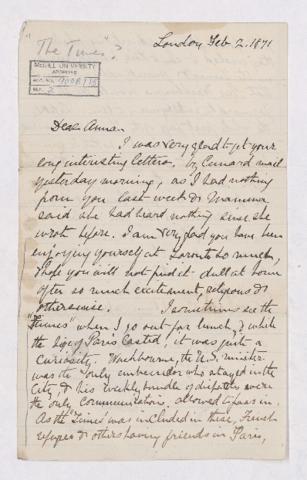 London Feb 2. 1871
"The Times"?
McGILL UNIVERSITY
ARCHIVES
ACC. NO.
REF. 2
Dear Anna
I was very glad to get your
long interesting letters by Cunard mail
yesterday morning, as I had nothing
from you last week & Mamma
said she had heard nothing since she
wrote before. I am very glad you have been
enjoying yourself at Toronto so much,
& hope you will not find it dull at home
after so much excitement, religious &
otherwise. I sometimes see the
"Times" when I go out for lunch, & while
the siege of Paris lasted, it was quite a
curiosity. Washbourne, the U.S. minister
was the only ambassador who stayed in the
City, & his weekly bundle of dispatches were
the only communications allowed to pass in.
As the "Times" was included in these, French
refugees & others having friends in Paris,